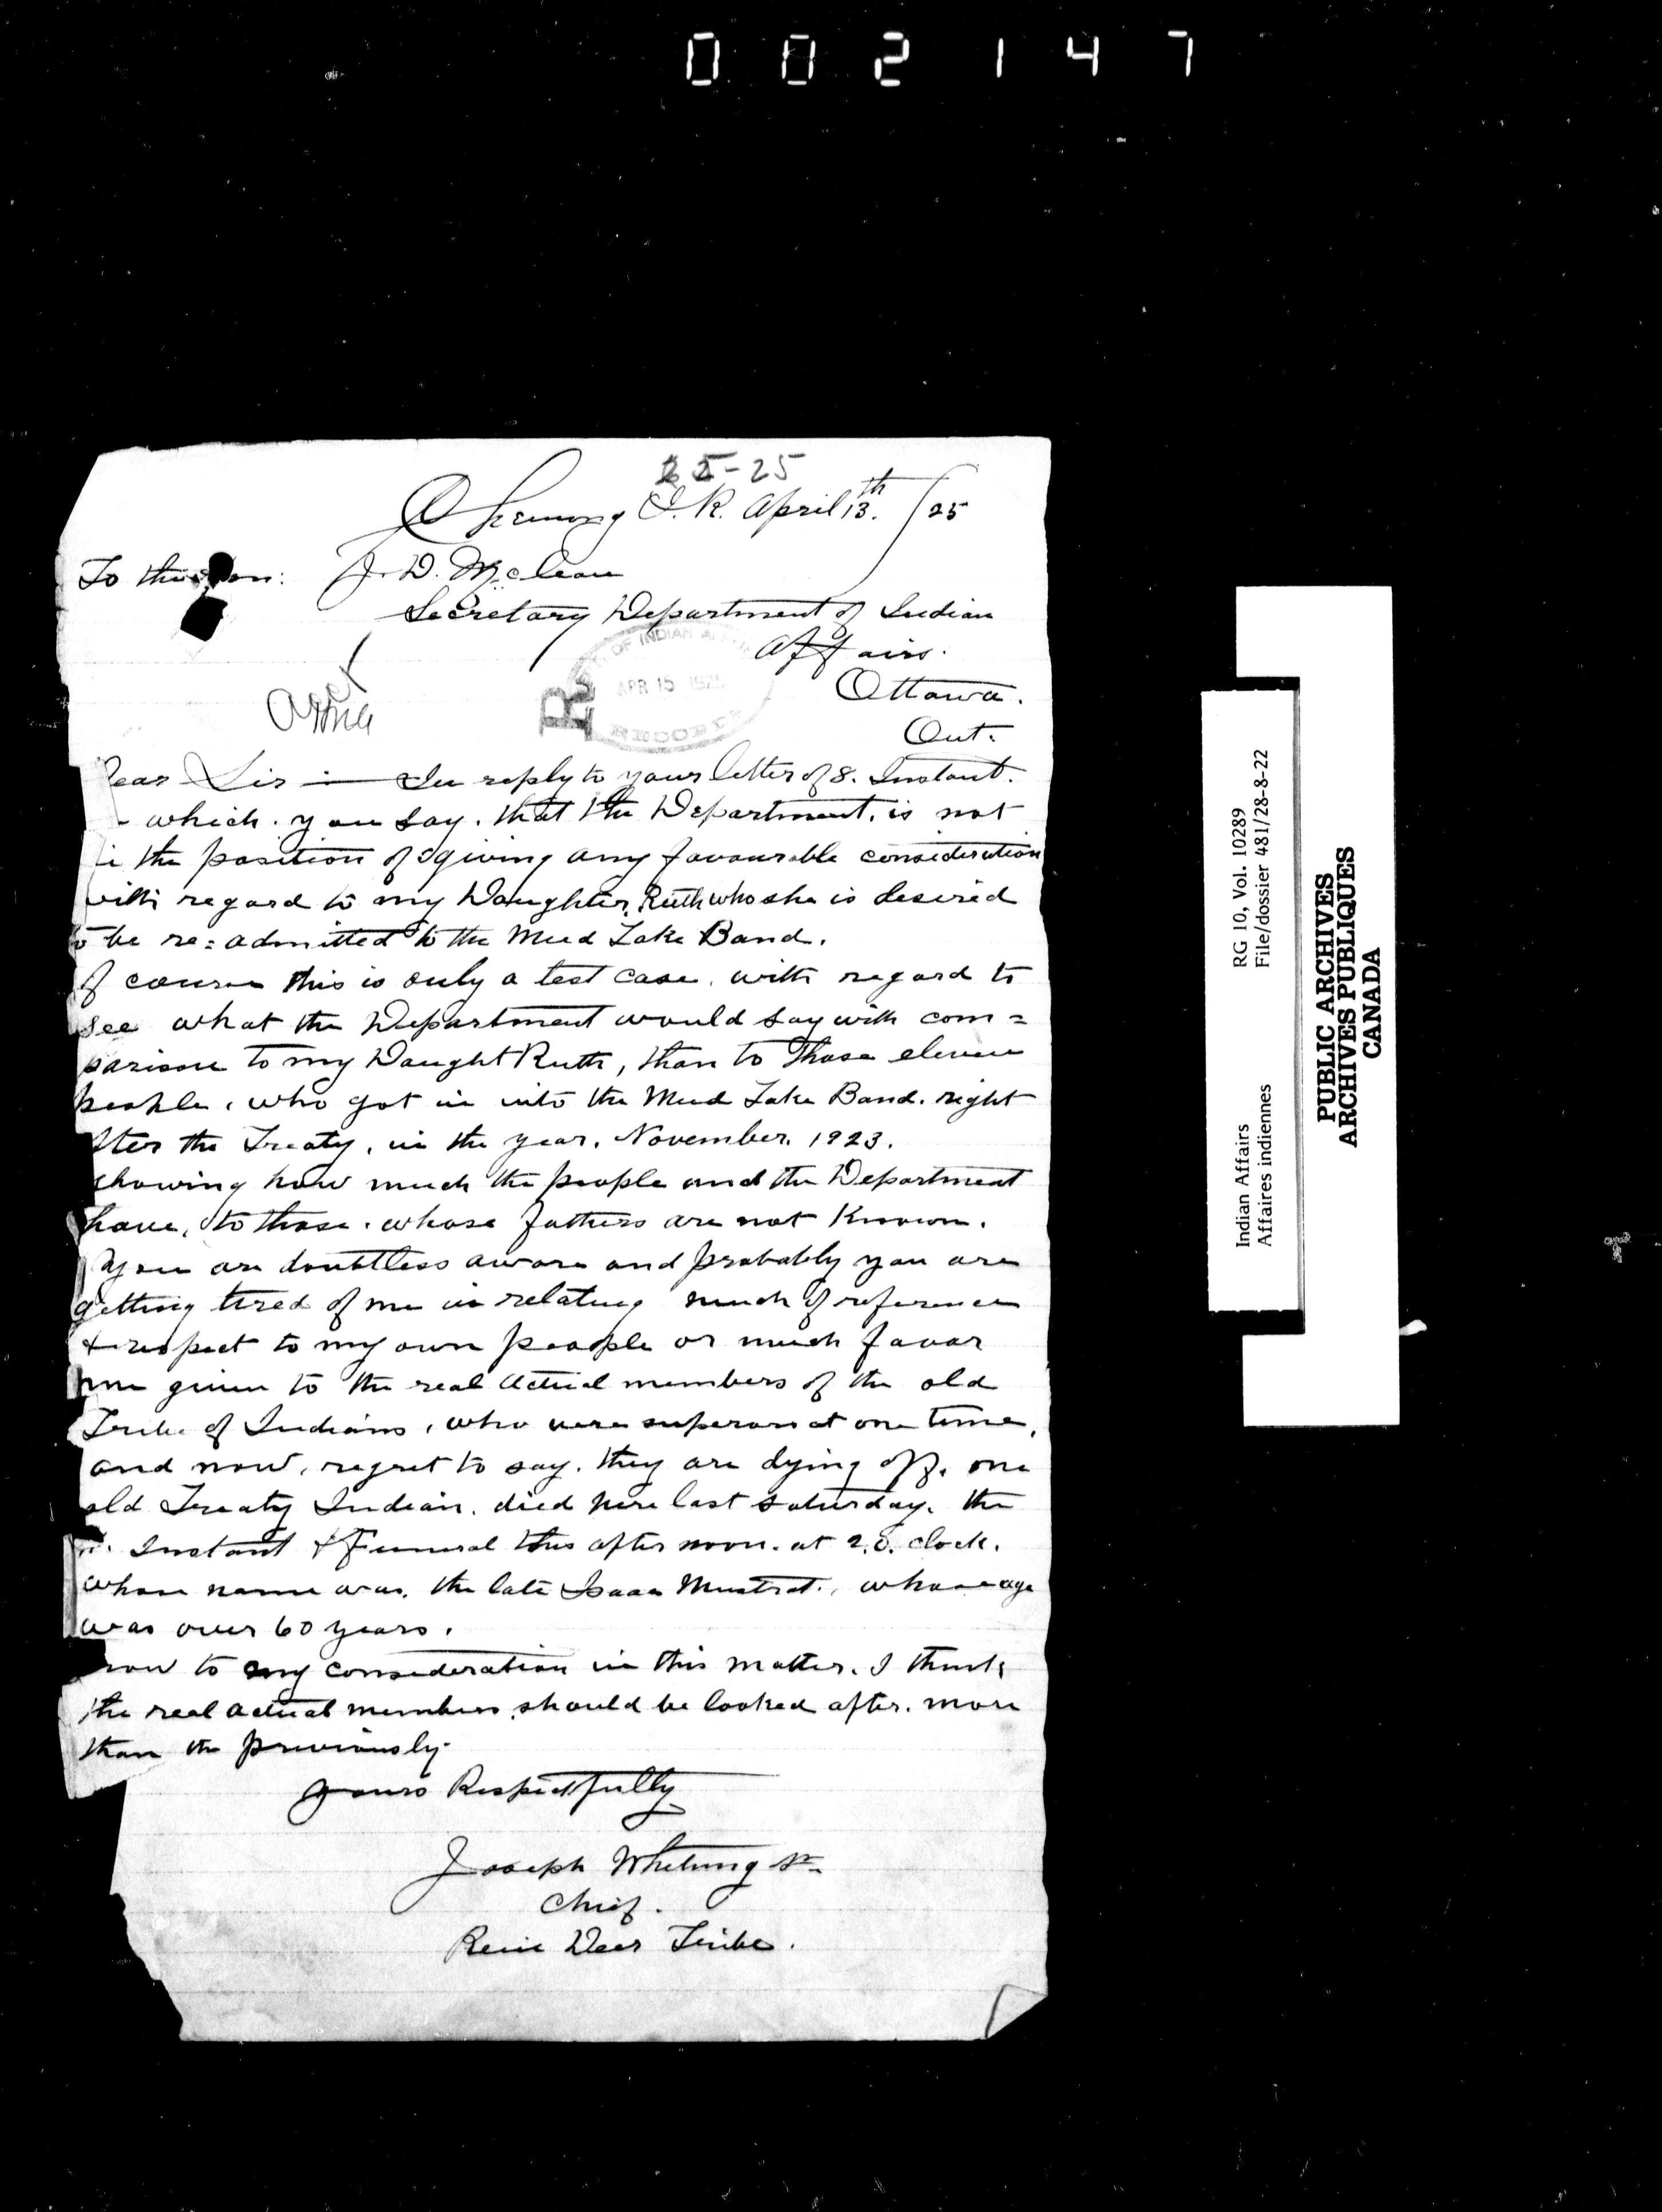 002147
25-25
Chemong I.R. April 13th /25
To the Hon: J. D. McLean
Secretary Department of Indian
Affairs.
Ottawa.
Ont.
OF INDIAN
APR 15 1925
RECORDS
Dear Sir — In reply to your letter of 8. Instant.
- which. you say. that the Department. is not
in the position of giving any favourable consideration
with regard to my Daughter, Ruth who she is desired
to be re=admitted to the Mud Lake Band.
Of course this is only a test case. with regard to
see what the Department would say with com=
parison to my Daught Ruth, than to those eleven
people. who got in into the Mud Lake Band. right
after the Treaty. in the year. November. 1923.
showing how much the people and the Department
have, to those. whose fathers are not known.
You are doubtless aware and probably you are
getting tired of me in relating much of reference
& respect to my own people or much favor
given to the real actual members of the old
Tribe of Indians, who were superior at one time,
and now, regret to say. they are dying off. one
old Treaty Indian. died here last saturday. the
Instant & Funeral this after noon. at 2.O. clock.
whose name was. the late Isaac Muskrat., whose age
was over 60 years.
now to any consideration in this matter. I think
the real actual members. should be looked after. more
than the previously.
yours Respectfully
Joseph Whetung Sr.
Chief.
Rein Deer Tribe.
Indian Affairs RG 10, Vol. 10289
Affaires indiennes File/dossier 481/28-8-22
PUBLIC ARCHIVES
ARCHIVES PUBLIQUES
CANADA